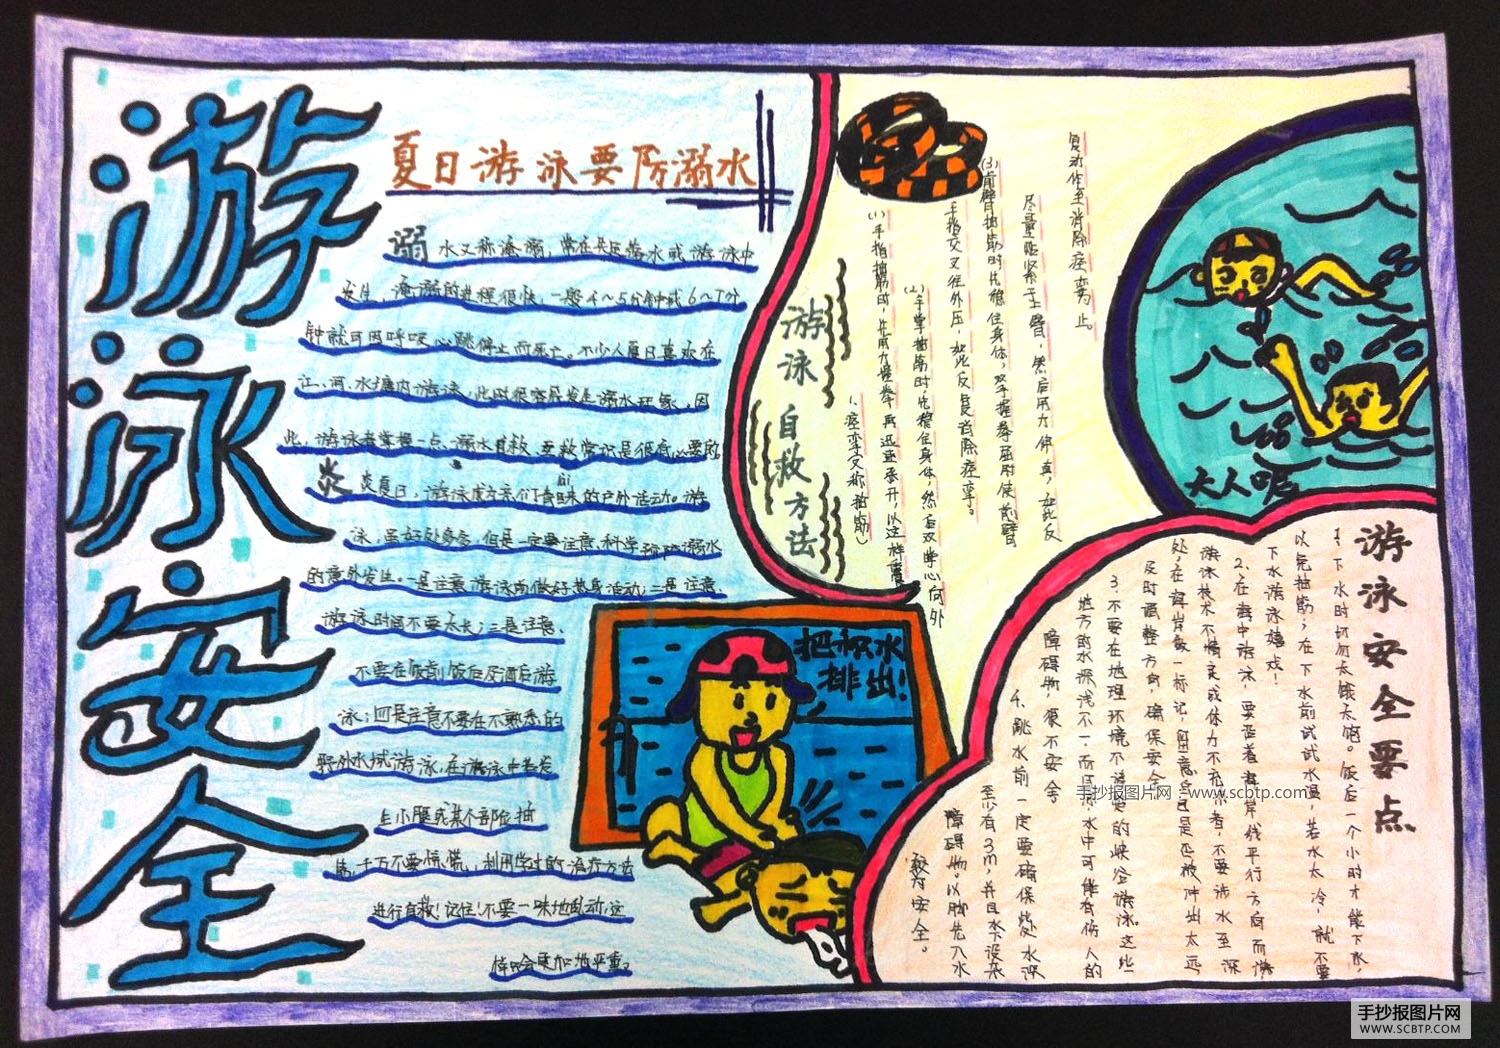 游泳安全
夏日游泳要防溺水
溺水又称淹溺，常在是因落水或游泳中
发生，淹溺的进程很快，一般4～5分钟或6～7分
钟就可因呼吸心跳停止而死亡。不少人夏日喜欢在
江、河、水塘内游泳，此时很容易发生溺水现象，因
此，游泳者掌握一点溺水自救、互救常识是很有必要的
炎炎夏日，游泳成为亲们青睐的户外活动。游
泳，虽好处多多，但是一定要注意，科学预防溺水
的意外发生。一是注意游泳前做好热身活动；二是注意
游泳时间不要太长；三是注意、
不要在饭前饭后及酒后游
泳；四是注意不要在不熟悉的
野外水域游泳，在游泳中若忽
点小腿或某个部位抽
筋，千万不要惊慌，利用学过的治疗方法
进行自救！记住！不要一味地乱动，这
样会更加地严重。
游泳自救方法
1、痉挛又称抽筋）
(1)手指抽筋时，先用力握拳，再迅速张开，以这样重
复动作至消除痉挛为止。
(2)手掌抽筋时，先稳住身体，然后双掌心向外
手指交叉往外压，如此反复消除痉挛。
(3)前臂抽筋时先稳住身体，双手握拳屈肘使前臂
尽量贴紧于上臂，然后用力伸直，如此反
大人呢
把积水
排出！
游泳安全要点
1、下水时切勿太饿太饱。饭后一个小时才能下水，
以免抽筋；在下水前试试水温，若水太冷，就不要
下水游泳嬉戏！
2、在海中游泳，要沿着海岸线平行方向而游
游泳技术不精良或体力不充沛者，不要涉水至深
处，在海岸做一标记，留意自己是否被冲出太远
及时调整方向，确保安全
3、不要在地理环境不清楚的峡谷游泳。这些
地方的水深浅不一，而且水中可能有伤人的
障碍物，很不安全
4、跳水前一定要确保此处水深
至少有3m，并且水下没杂
障碍物。以脚先入水
较为安全。
手抄报图片网 - www.scbtp.com
手抄报图片网
WWW.SCBTP.COM